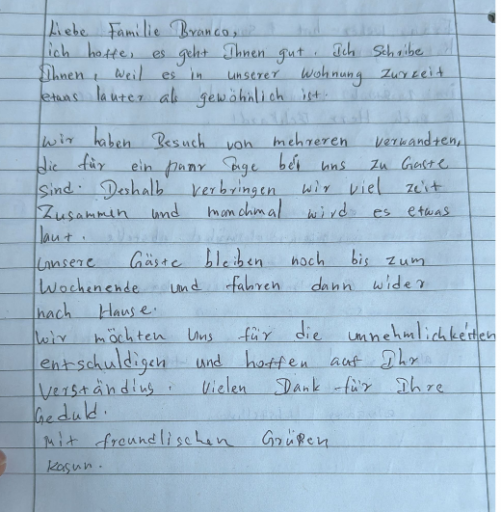 Liebe Familie Branco,
ich hoffe, es geht Ihnen gut. Ich Schreibe
Ihnen, weil es in unserer Wohnung zurzeit
etwas lauter als gewöhnlich ist.
Wir haben Besuch von mehreren verwandten,
die für ein paar Tage bei uns zu Gaste
Sind. Deshalb verbringen wir viel zeit
Zusammen und manchmal wird es etwas
laut.
Unsere Gäste bleiben noch bis zum
Wochenende und fahren dann wider
nach Hause.
Wir möchten uns für die unnehmlichkeiten
entschuldigen und hoffen auf Ihr
Verständins. Vielen Dank für Ihre
Geduld.
Mit freundlischen Grüßen
Kasun.